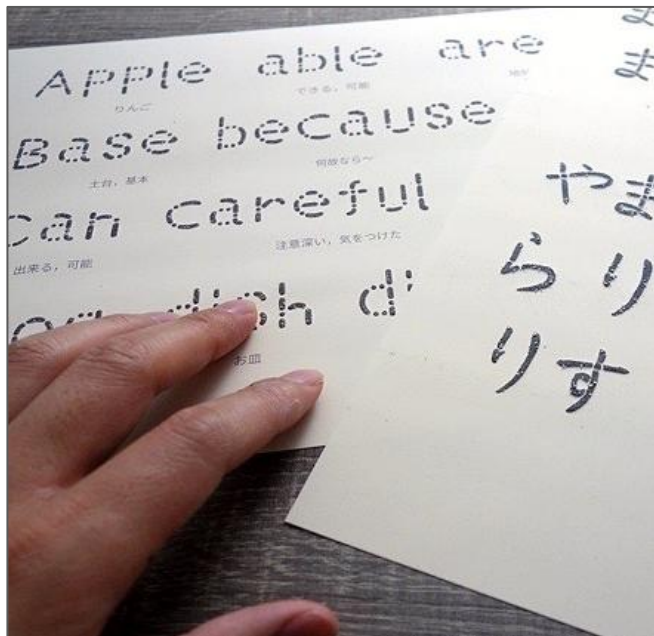 Apple able are
りんご できる，可能
Base because
土台，基本 何故なら〜
can careful
出来る，可能 注意深い，気をつけた
dish
お皿
ま
やま
らり
りす